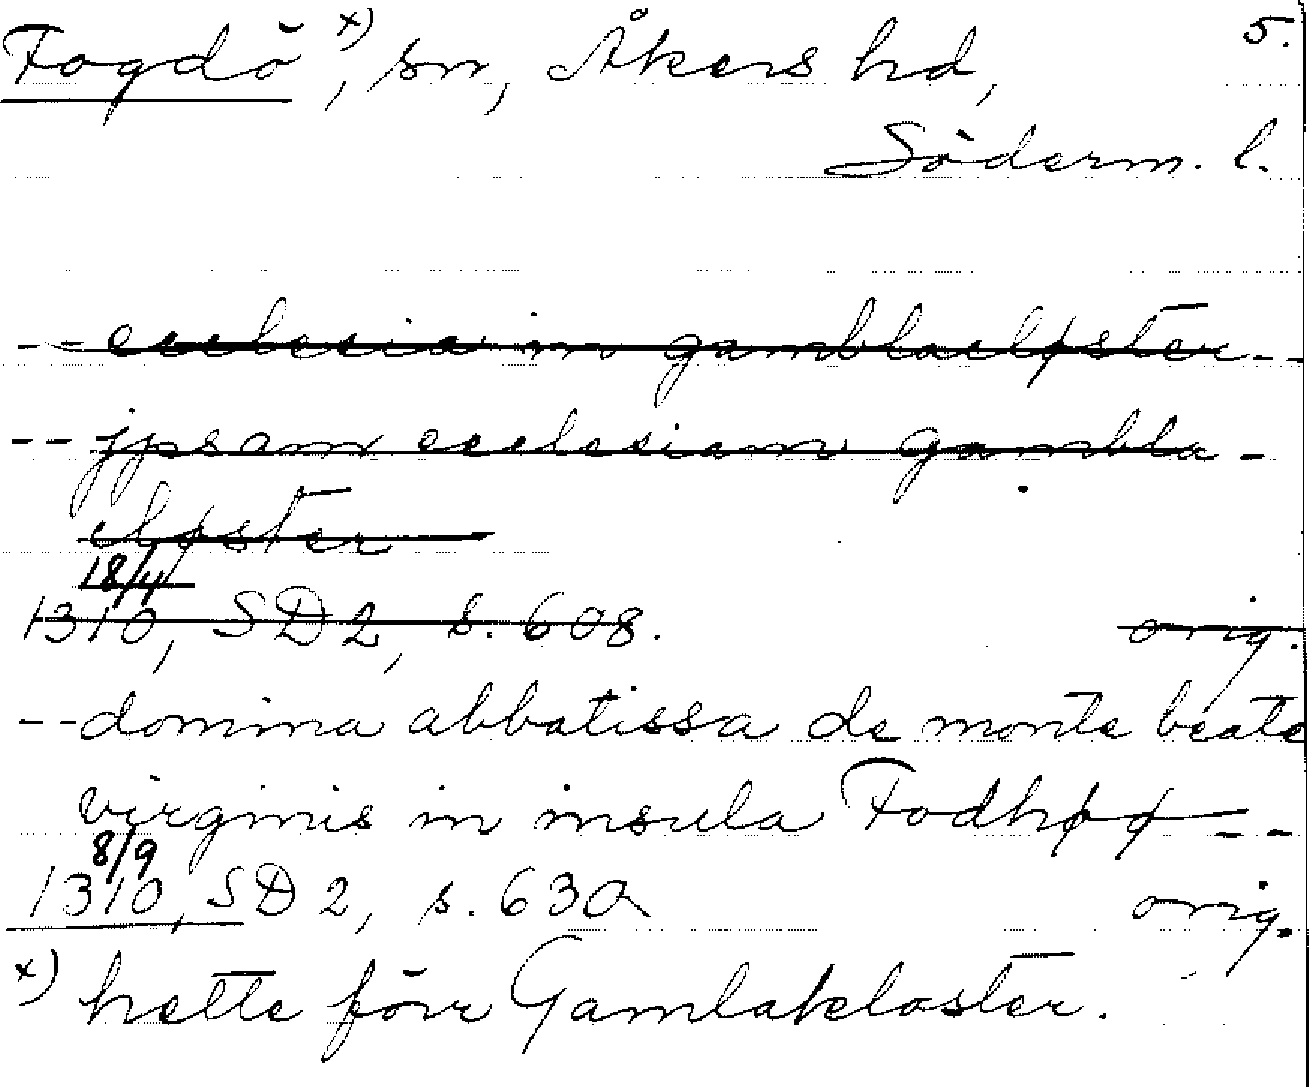 Fogdö x), sn, Åkers hd, 5.
Söderm. l.
-- ecclesia in gamblacløster --
-- jpsam ecclesiam gambla-
cløster
18/4
1310, SD 2, s. 608. orig.
-- domina abbatissa de monte beate
virginis in insula Fodhøø --
8/9
1310, SD 2, s. 630 orig.
x) hette förr Gamlakloster.